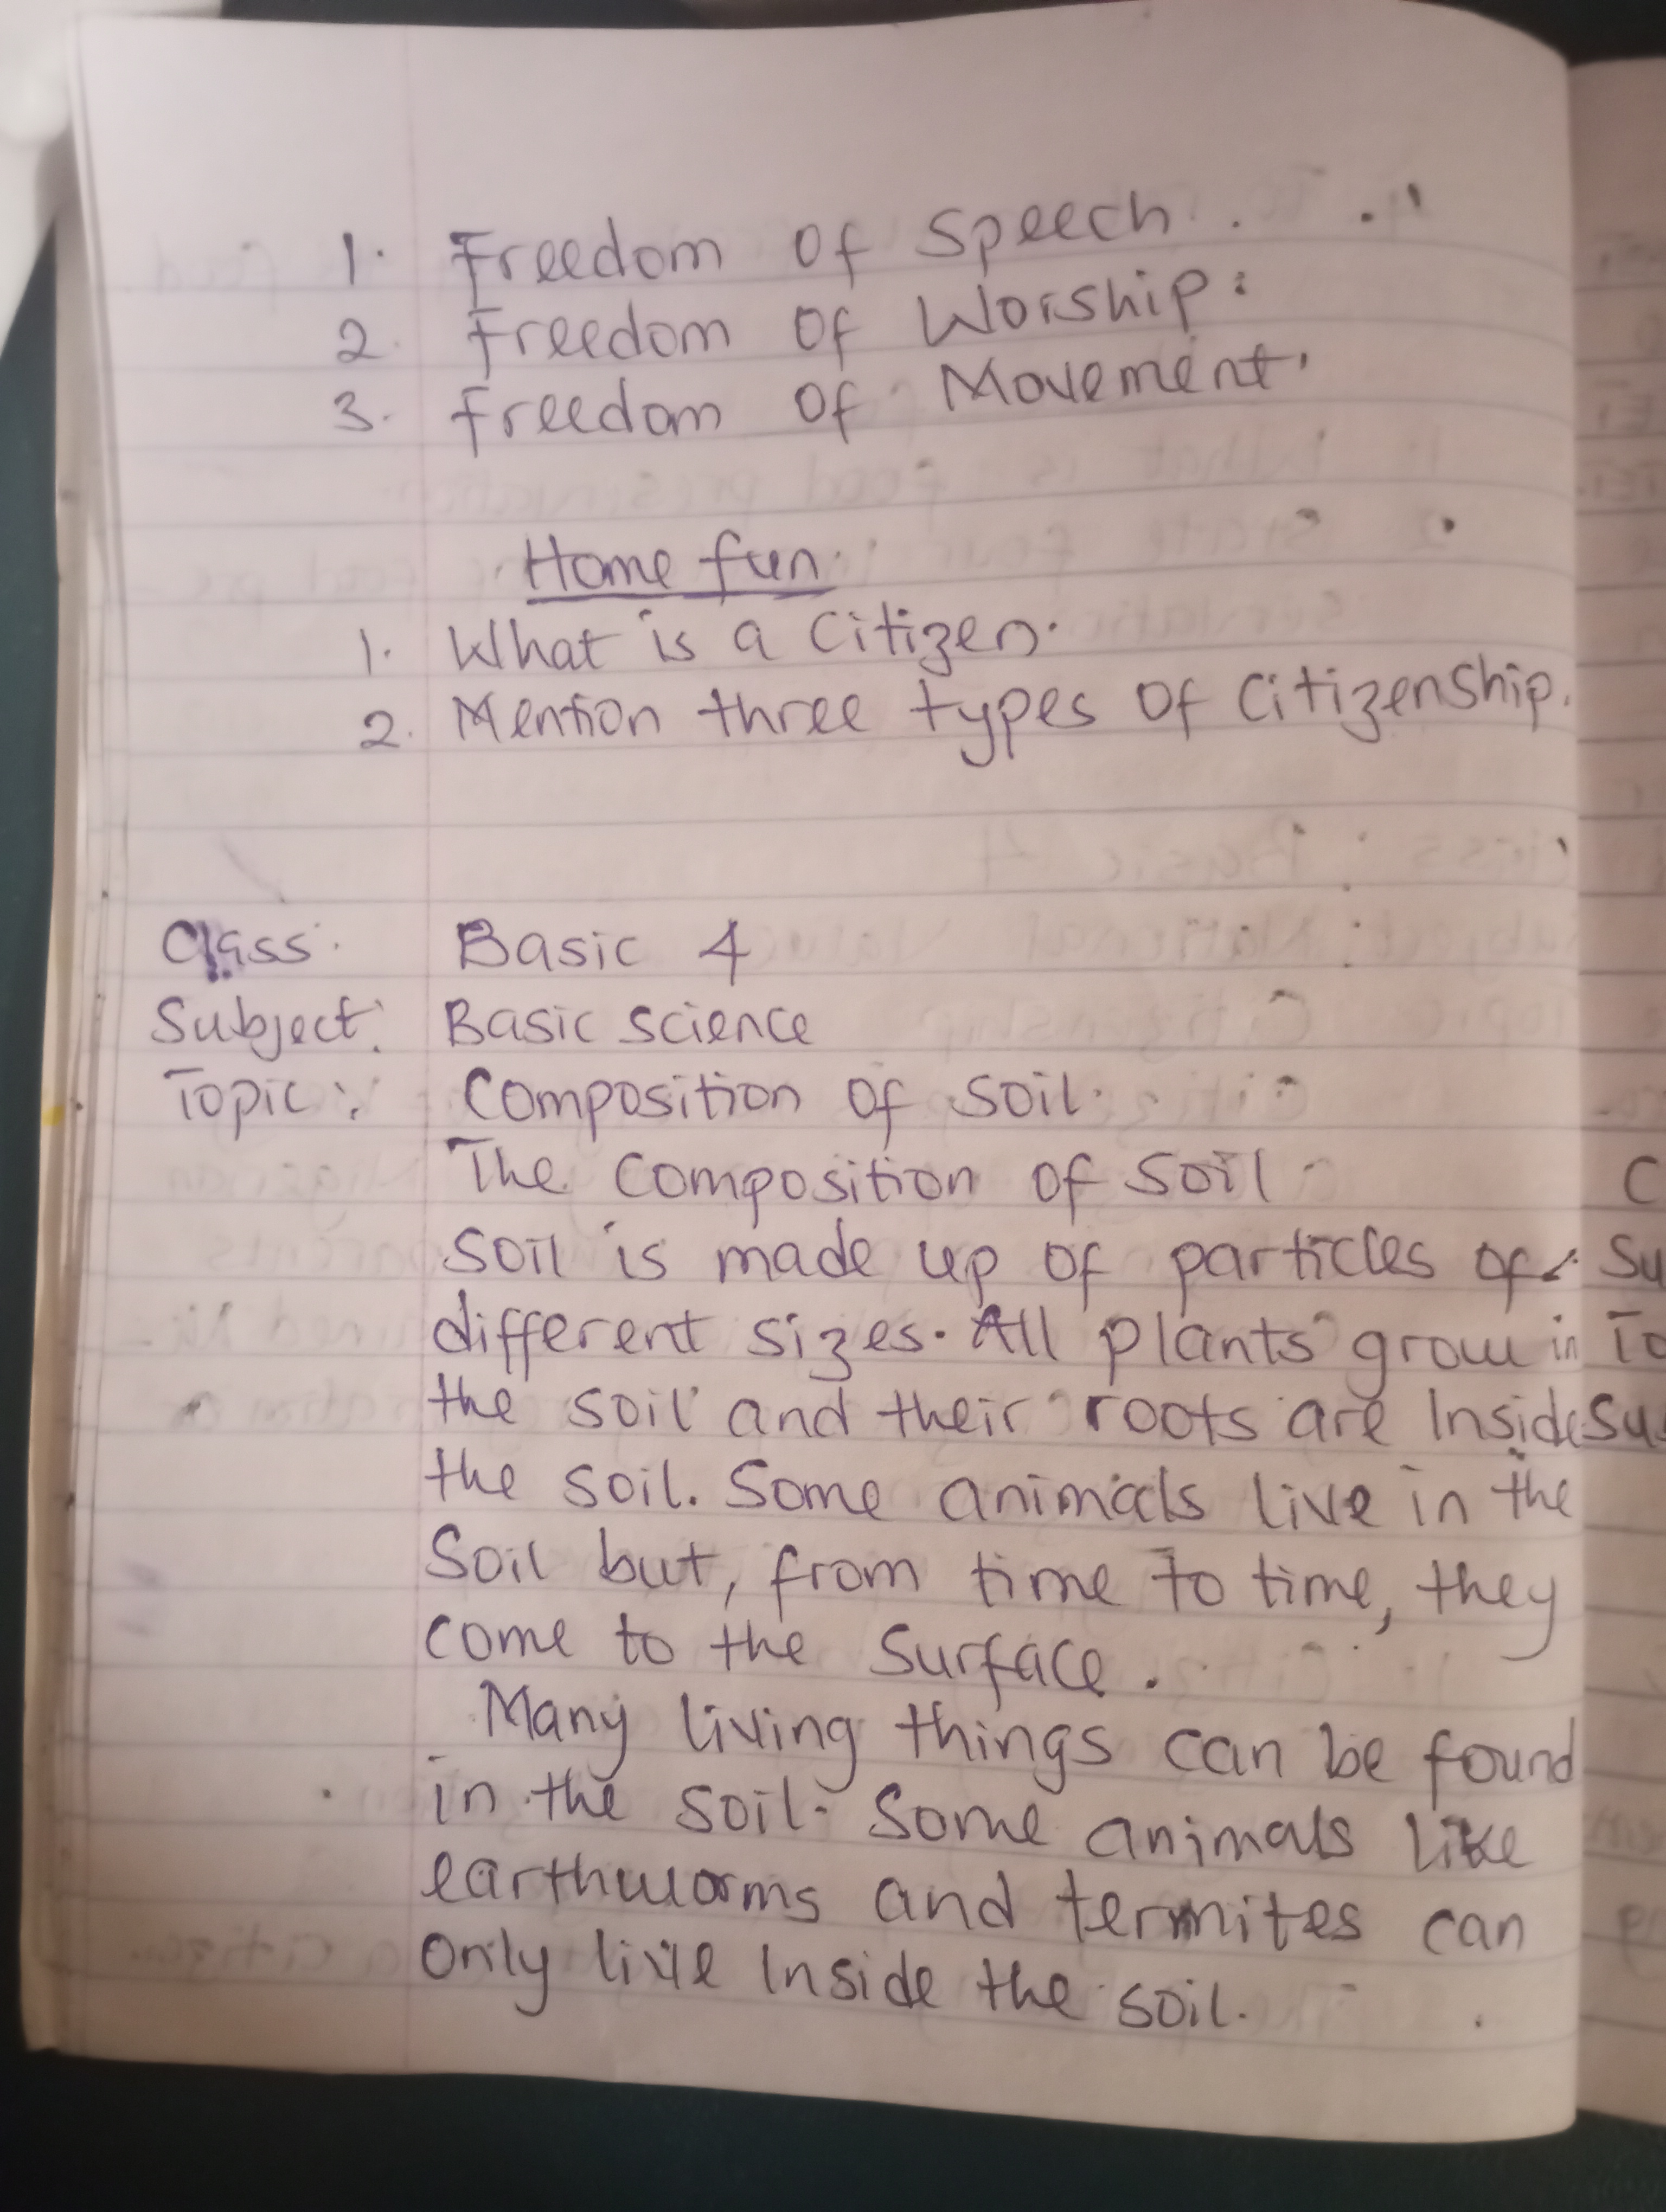 1. Freedom of speech.
2. Freedom of Worship:
3. Freedom of Movement.
Home fun.
1. What is a Citizen.
2. Mention three types of Citizenship.
Class: Basic 4
Subject: Basic science
Topic: Composition of soil.
The Composition of Soil
Soil is made up of particles of
different sizes. All plants grow in
the soil and their roots are Inside
the soil. Some animals live in the
Soil but, from time to time, they
come to the surface.
Many living things can be found
in the soil. Some animals like
earthworms and termites can
only live Inside the soil.